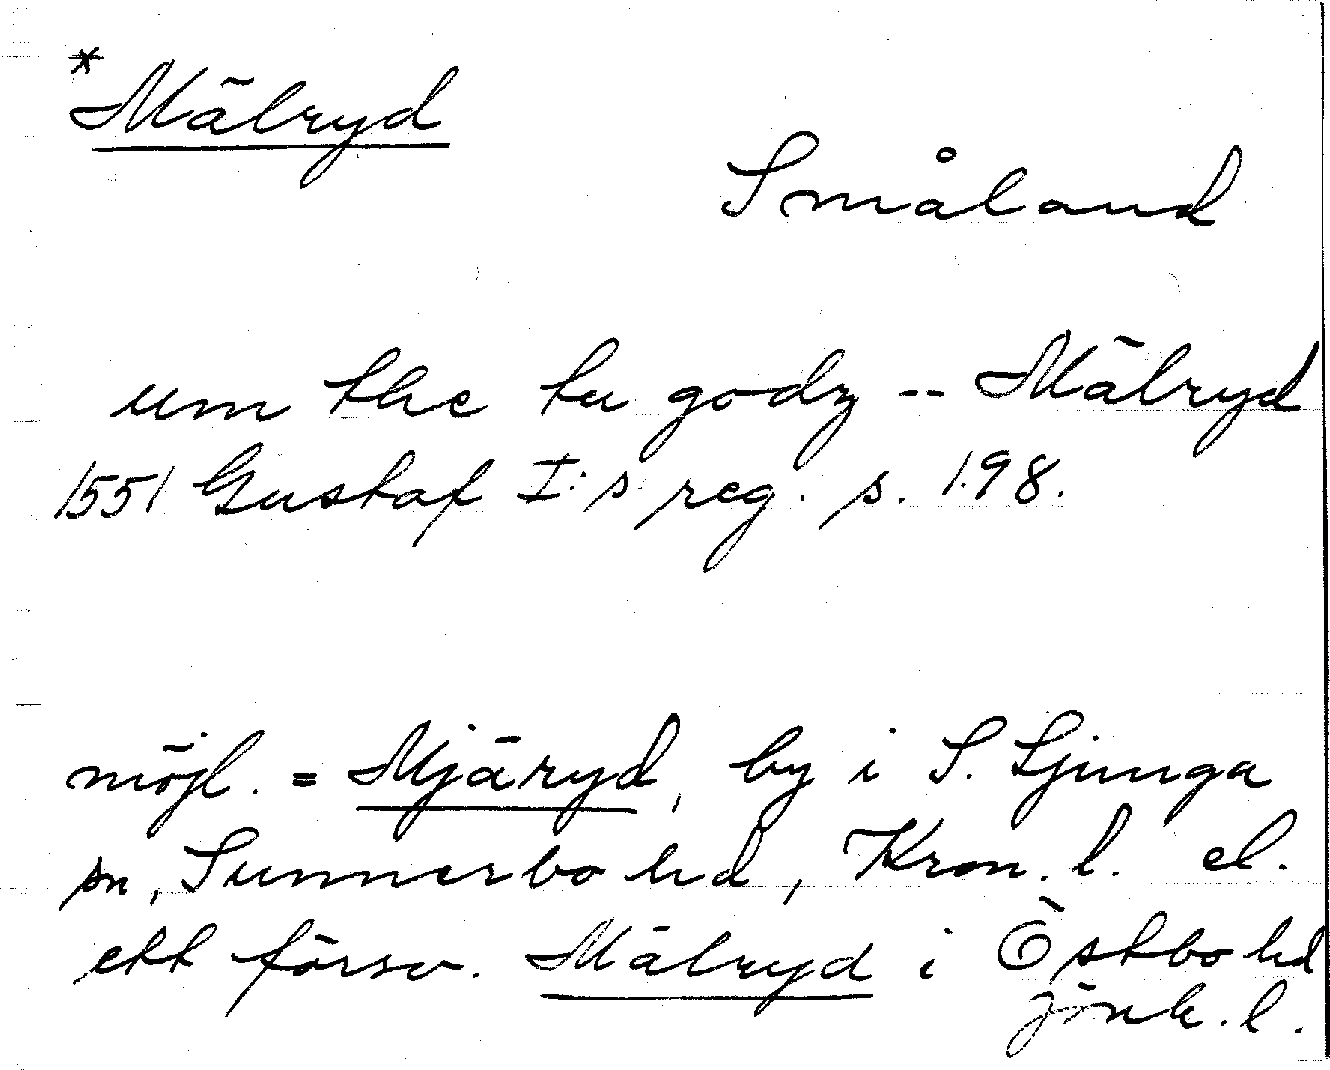 *Mälryd
Småland
um the tu godz -- Mälryd
1551 Gustaf I:s reg. s. 198.
möjl. = Mjäryd, by i S. Ljunga
sn, Sunnerbo hd, Kron. l. el.
ett försv. Mälryd i Östbo hd
Jönk. l.